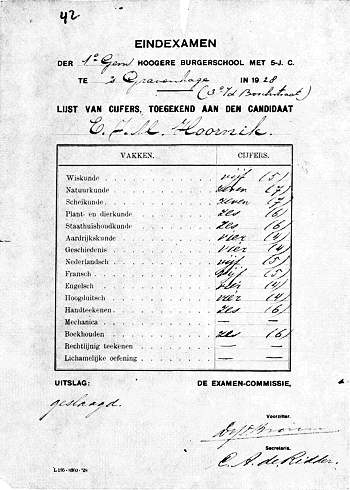 42
EINDEXAMEN
DER 1e Gem HOOGERE BURGERSCHOOL MET 5-J. C.
TE 's Gravenhage IN 1928
(3e v/d Boschstraat)
LIJST VAN CIJFERS, TOEGEKEND AAN DEN CANDIDAAT
E. J. M. Hoornik.
VAKKEN. CIJFERS.
Wiskunde vijf (5)
Natuurkunde zeven (7)
Scheikunde zeven (7)
Plant- en dierkunde zes (6)
Staathuishoudkunde zes (6)
Aardrijkskunde vier (4)
Geschiedenis vier (4)
Nederlandsch vijf (5)
Fransch vijf (5)
Engelsch vier (4)
Hoogduitsch vier (4)
Handteekenen zes (6)
Mechanica — —
Boekhouden zes (6)
Rechtlijnig teekenen — —
Lichamelijke oefening — —
UITSLAG: DE EXAMEN-COMMISSIE,
geslaagd.
Voorzitter.
Secretaris.
C. A. de Ridder.